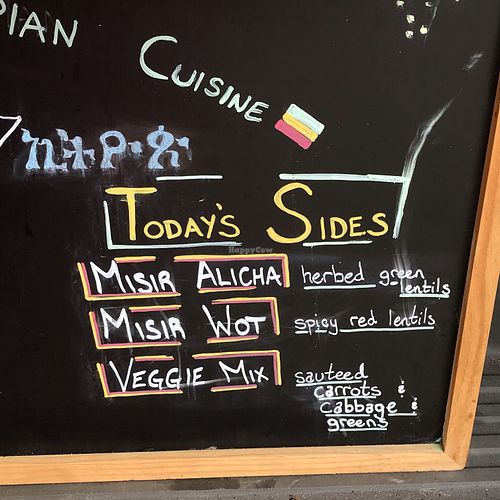 PIAN
CUISINE
ኢትዮጵ
TODAY'S SIDES
MISIR ALICHA herbed green lentils
MISIR WOT spicy red lentils
VEGGIE MIX sauteed
carrots &
cabbage &
greens
HappyCow